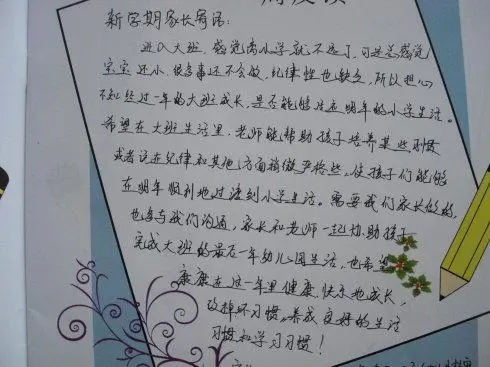 新学期家长寄语：
进入大班，感觉离小学就不远了，可是总感觉
宝宝还小，很多事还不会做，纪律性也缺乏，所以担心
不知经过一年的大班成长，是否能够适应明年的小学生活。
希望在大班生活里，老师能帮助孩子培养某些习惯
或者说在纪律和其他方面稍微严格些，使孩子们能够
在明年顺利地过渡到小学生活。需要我们家长做的，
也多与我们沟通，家长和老师一起协助孩子
完成大班的最后一年幼儿园生活，也希望
康康在这一年里健康、快乐地成长，
改掉坏习惯，养成良好的生活
习惯和学习习惯！